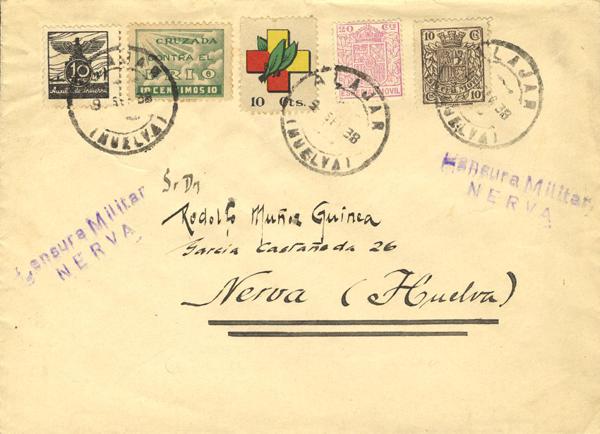 10
Auxilio de Invierno
CRUZADA
CONTRA EL
FRIO
10 CENTIMOS 10
10 Cts.
20 Cs
MOVIL
10 Cs
10
ALAJAR
9 SE 38
(HUELVA)
ALAJAR
9 SE 38
(HUELVA)
ALAJAR
38
(HUELVA)
Censura Militar
NERVA
Censura Militar
NERVA
Sr Dn
Rodolfo Muñiz Guinea
García Castañeda 26
Nerva (Huelva)